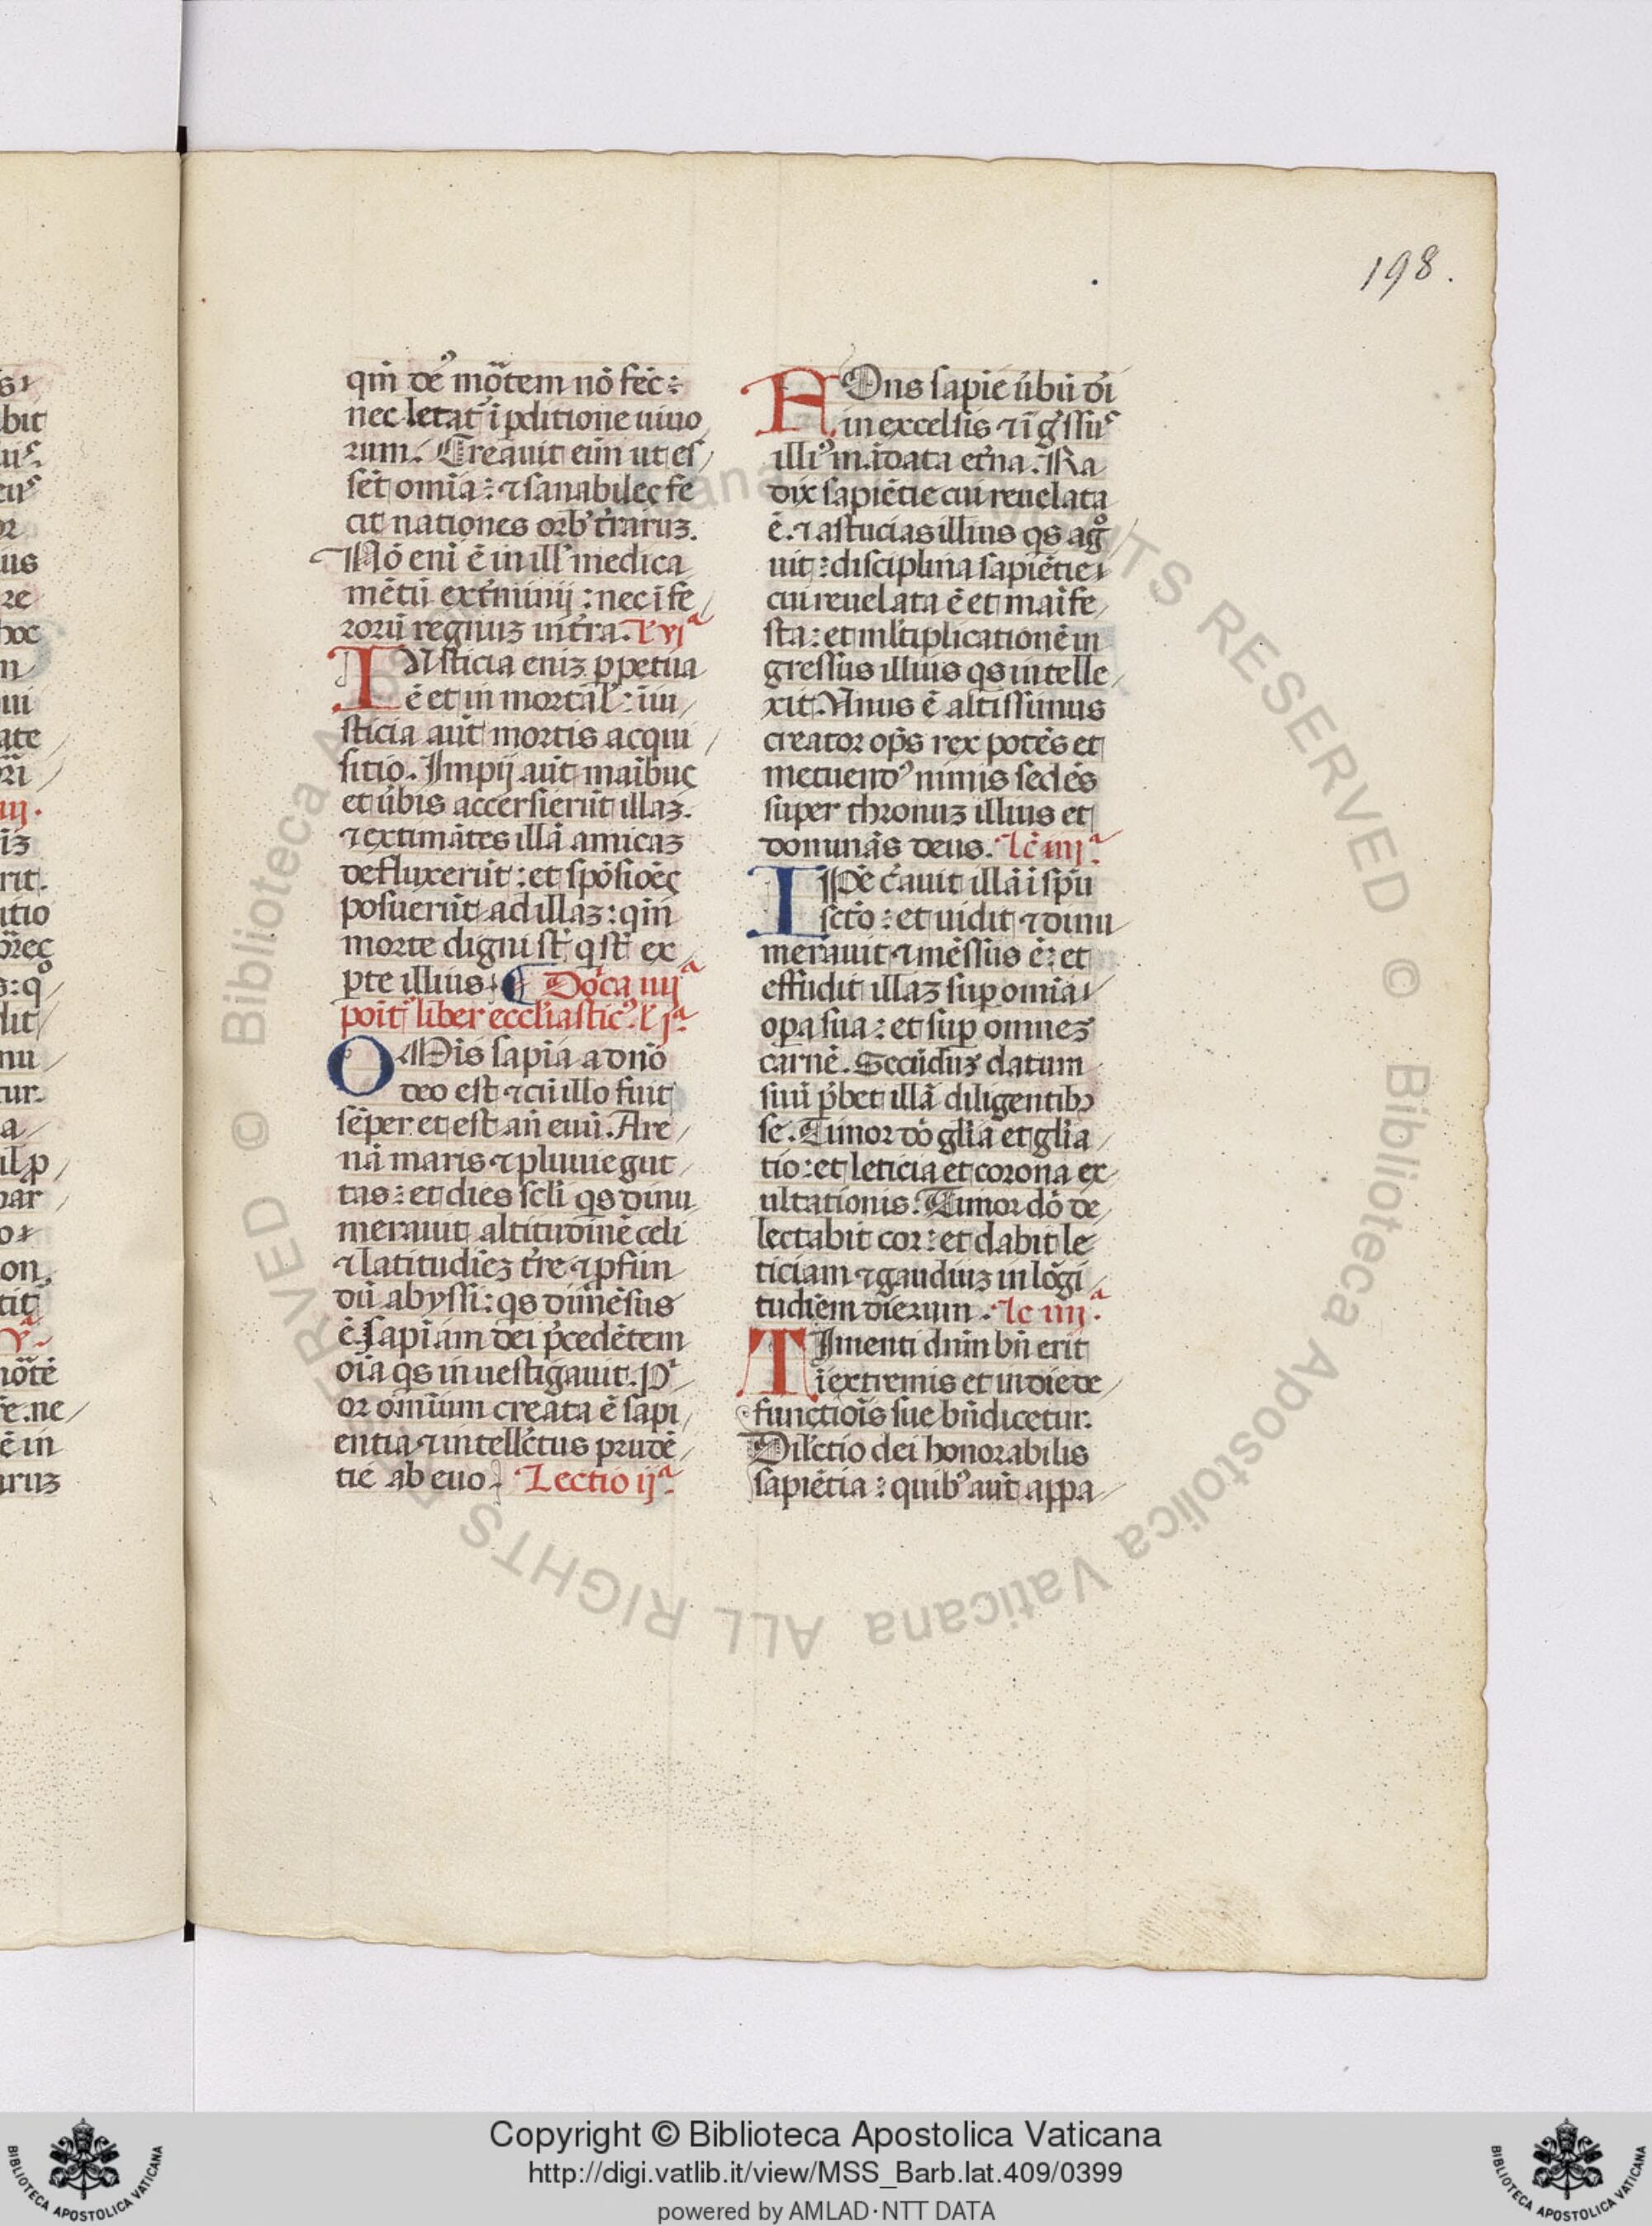 198.
qm̄ de᷒ mo᷒tem nō fec̄:
nec letat᷒ ī ꝑditione uiuo
rum. Creauit eim̄ ut es
sēt om̄ia: ⁊ sanabileç fe
cit nationes orb᷒ t̄raruʒ.
Nō enī ē in ill᷒ medica
mētū ext̄minij: nec ī īfe
rorū regnuʒ in t̄ra. l᷒ vjª
IUsticia eniʒ ꝑpetua
ē et in mortal᷒: īiu
sticia aūt mortis acqui
sitio. Impij aūt maībuç
et ūbis accersierūt illaʒ.
⁊ extimātes illā amicaʒ
defluxerūt: et spōsiōeç
posuerūt ad illaʒ: qm̄
morte digni st̄ q̄ st̄ ex
ꝑte illius. ¶ Dōca iiijª
poīt᷒ liber eccl̄iastic᷒. l᷒ jª
OMīs sapīa a dn̄o
deo est ⁊ cū illo fuit
sēper et est an̄ euū. Are
nā maris ⁊ pluuie gut
tas: et dies sc̄li q̄s dinu
merauit altitudinē celi
⁊ latitudīeʒ t̄re ⁊ ꝓfun
dū abyssi: q̄s dimēsus
ē Sapīam dei p̄cedētem
oīa q̄s inuestigauit. Pⁱ
or om̄ium creata ē sapi
entia ⁊ intellc̄tus prudē
tie ab euo. Lectio ijª
FOns sapīe ūbū dī
in excelsis ⁊ īg᷒ssu᷒
illi᷒ mādata et̄na. Ra
dix sapiētie cui reuelata
ē. ⁊ astucias illius q̄s agͦ
uit: disciplina sapiētie
cui reuelata ē et maīfe
sta: et ml̄tiplicationē in
gressus illius q̄s intelle
xit. Unus ē altissimus
creator op̄s rex potēs et
metuend᷒ nimis sedēs
super thronuʒ illius et
dominās deus. lc̄ iijª
IPē c̄auit illā ī sp̄u
sc̄to: et uidit ⁊ dinu
merauit ⁊ mēsus ē: et
effudit illaʒ suꝑ om̄ia
oꝑa sua: et suꝑ omneʒ
carnē. Secūduʒ datum
suū p̄bet illā diligentibꝫ
se. Timor dō gl̄ia et gl̄ia
tio: et leticia et corona ex
ultationis. Timor dō de
lectabit cor: et dabit le
ticiam ⁊ gaudiuʒ in lōgi
tudiēm dierum. lc̄ iiijª
TImenti dn̄m bn̄ erit
ī extremis et in die de
functiōis sue bn̄dicetur.
Dil᷒ctio dei honorabilis
sapiētia: quib᷒ aūt appa
Copyright © Biblioteca Apostolica Vaticana
http://digi.vatlib.it/view/MSS_Barb.lat.409/0399
powered by AMLAD·NTT DATA